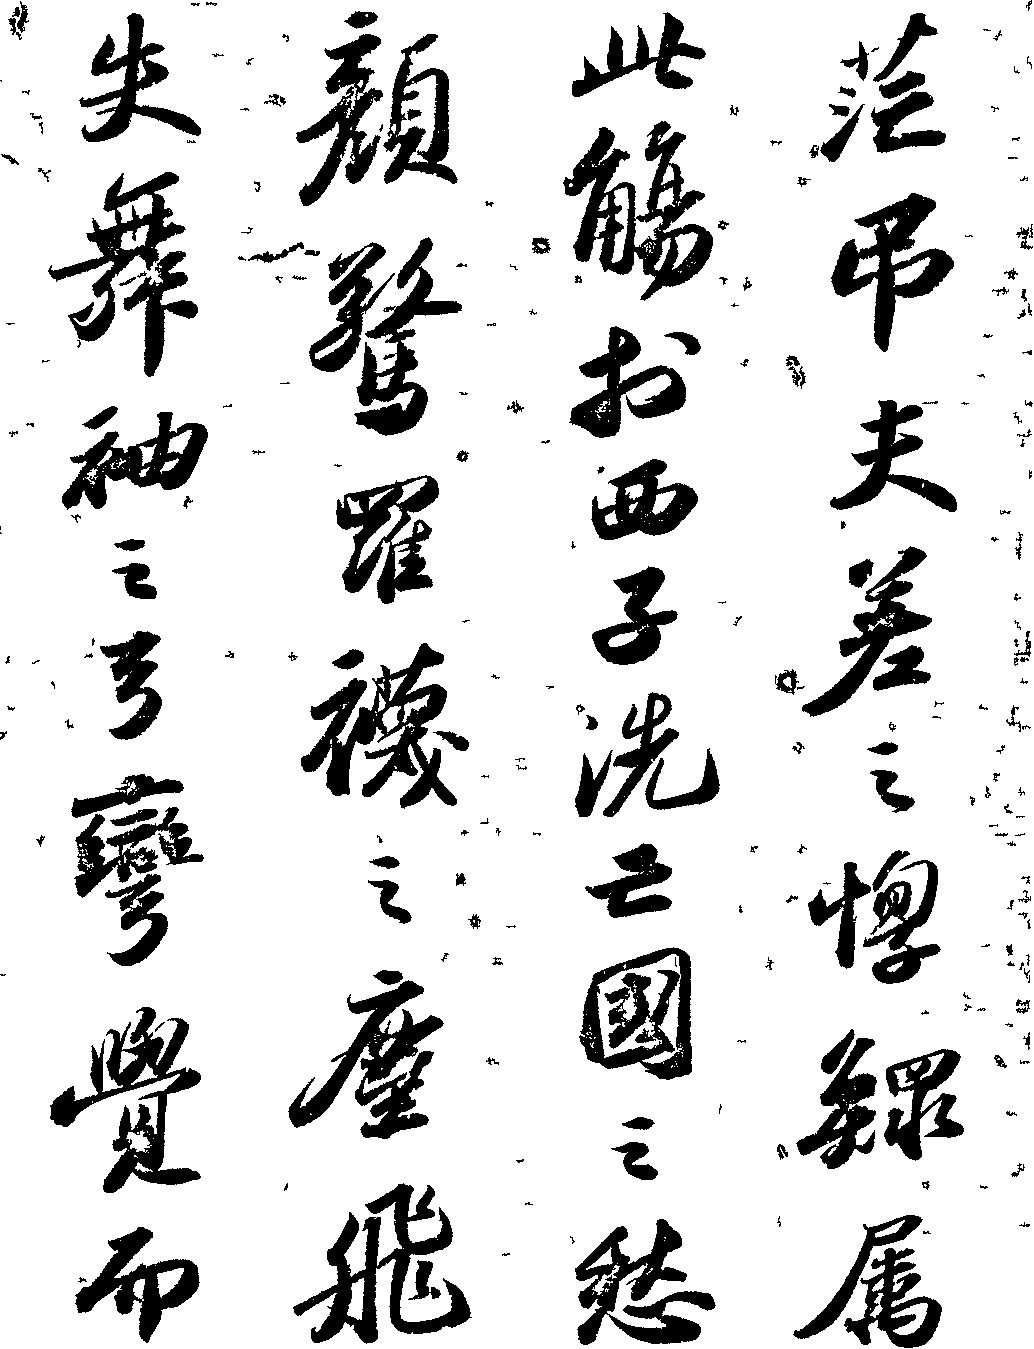 茫吊夫差之惸鰥属
此觴於西子洗亡國之愁
顏驚羅襪之塵飛
失舞袖之弓彎覺而